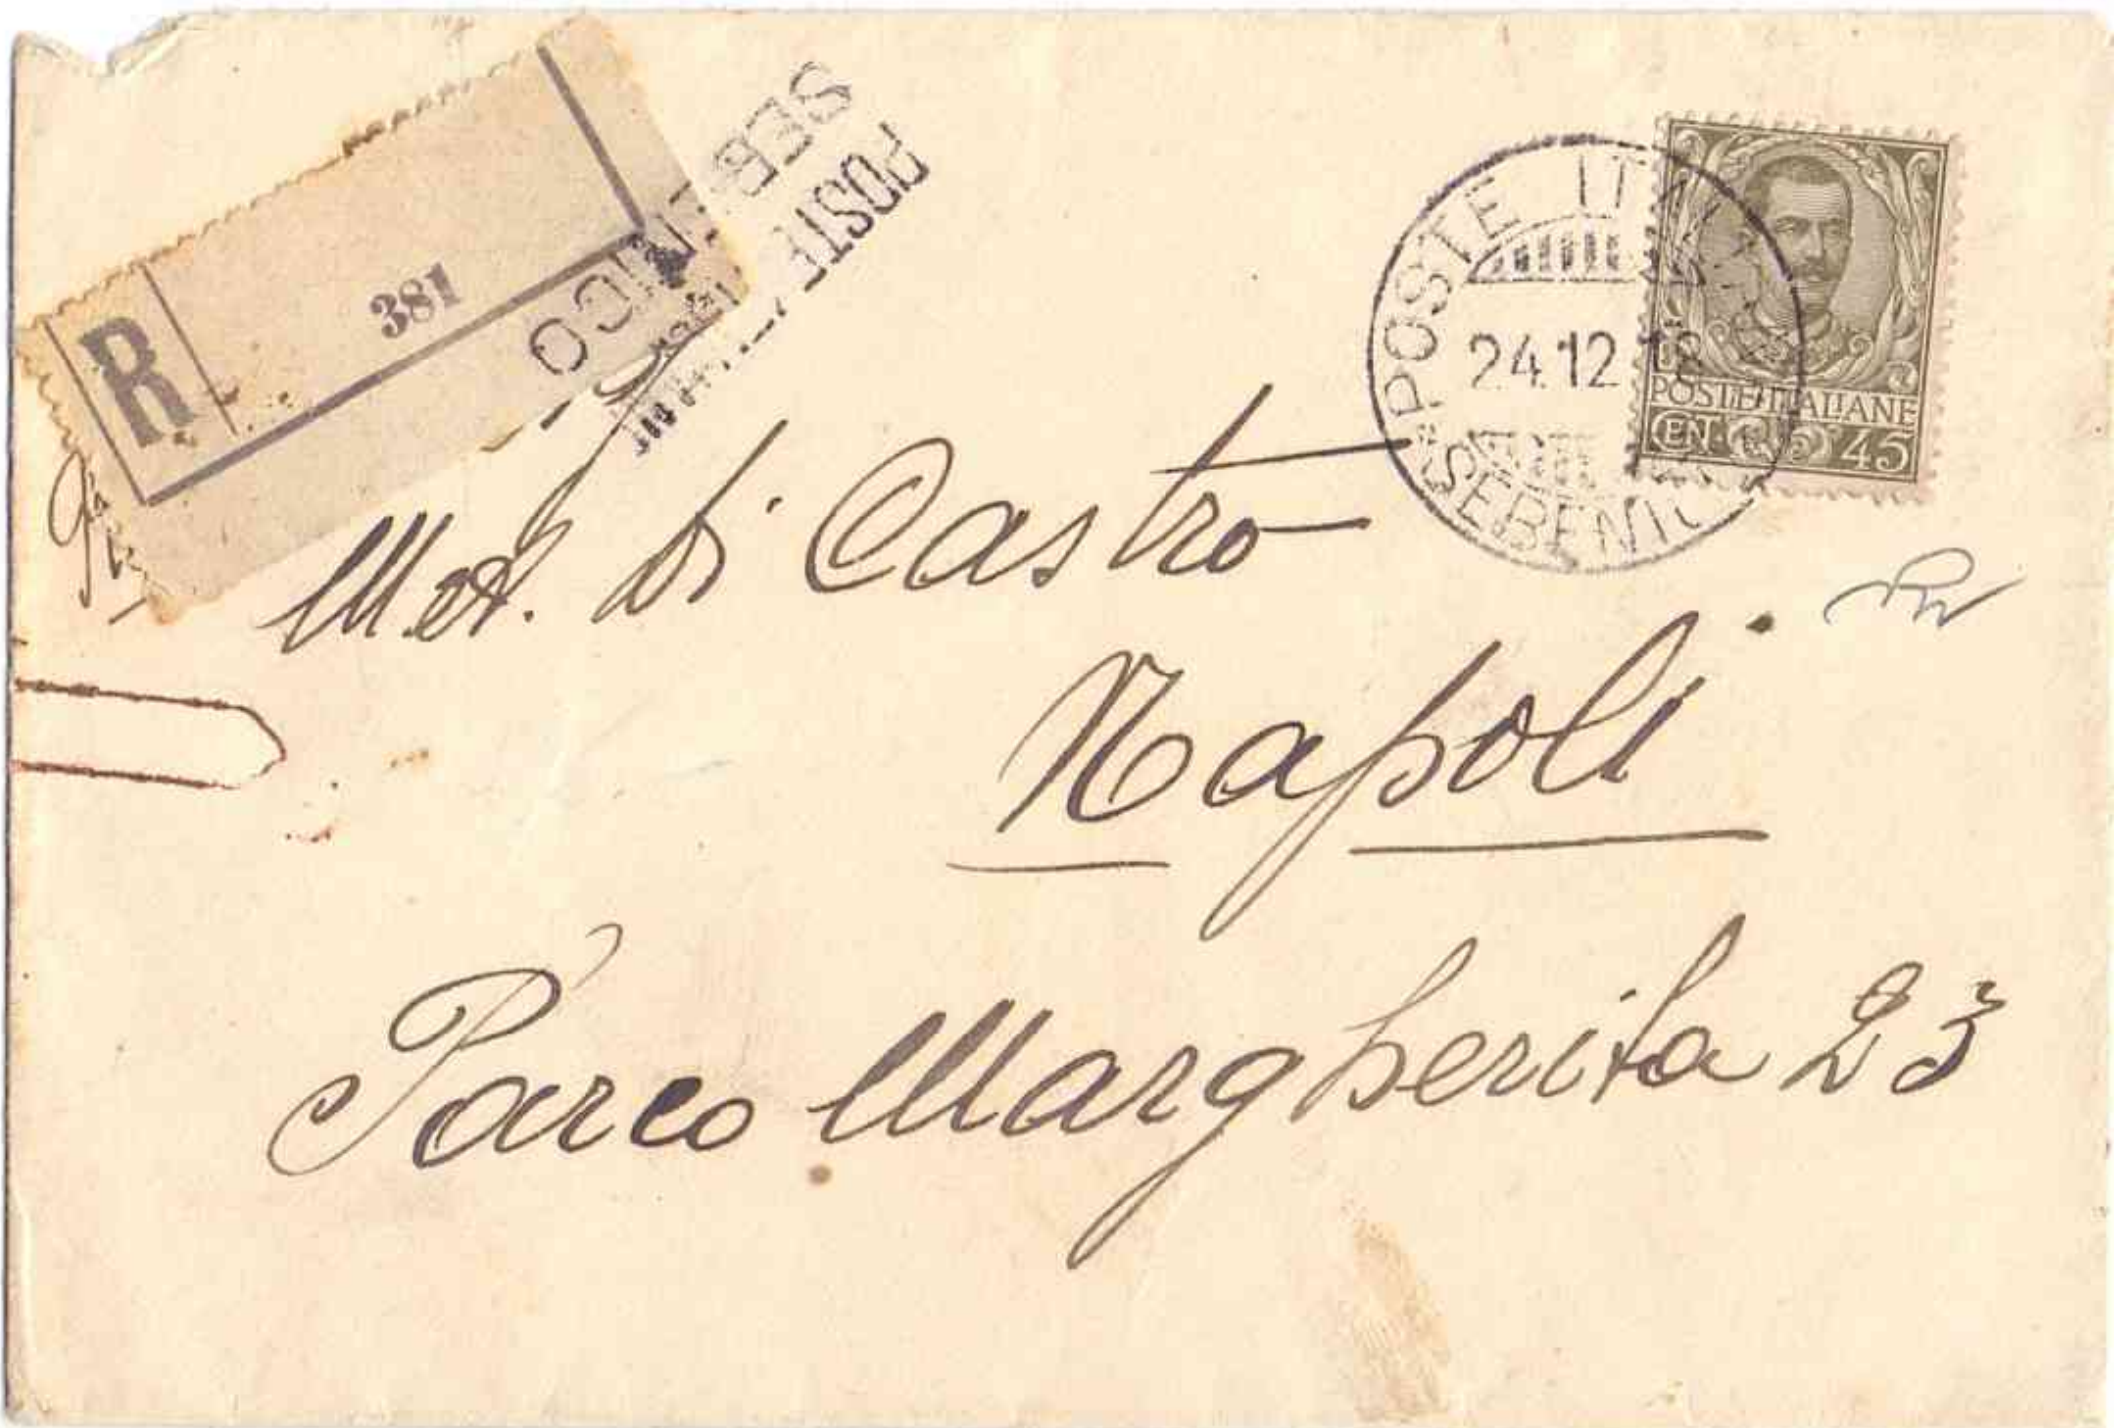 R
381
POSTE
SEBENICO
POSTE ITALIANE
24.12.18
SEBENICO
POSTE ITALIANE
CEN. 45
Met. Di Castro
Napoli
Parco Margherita 23